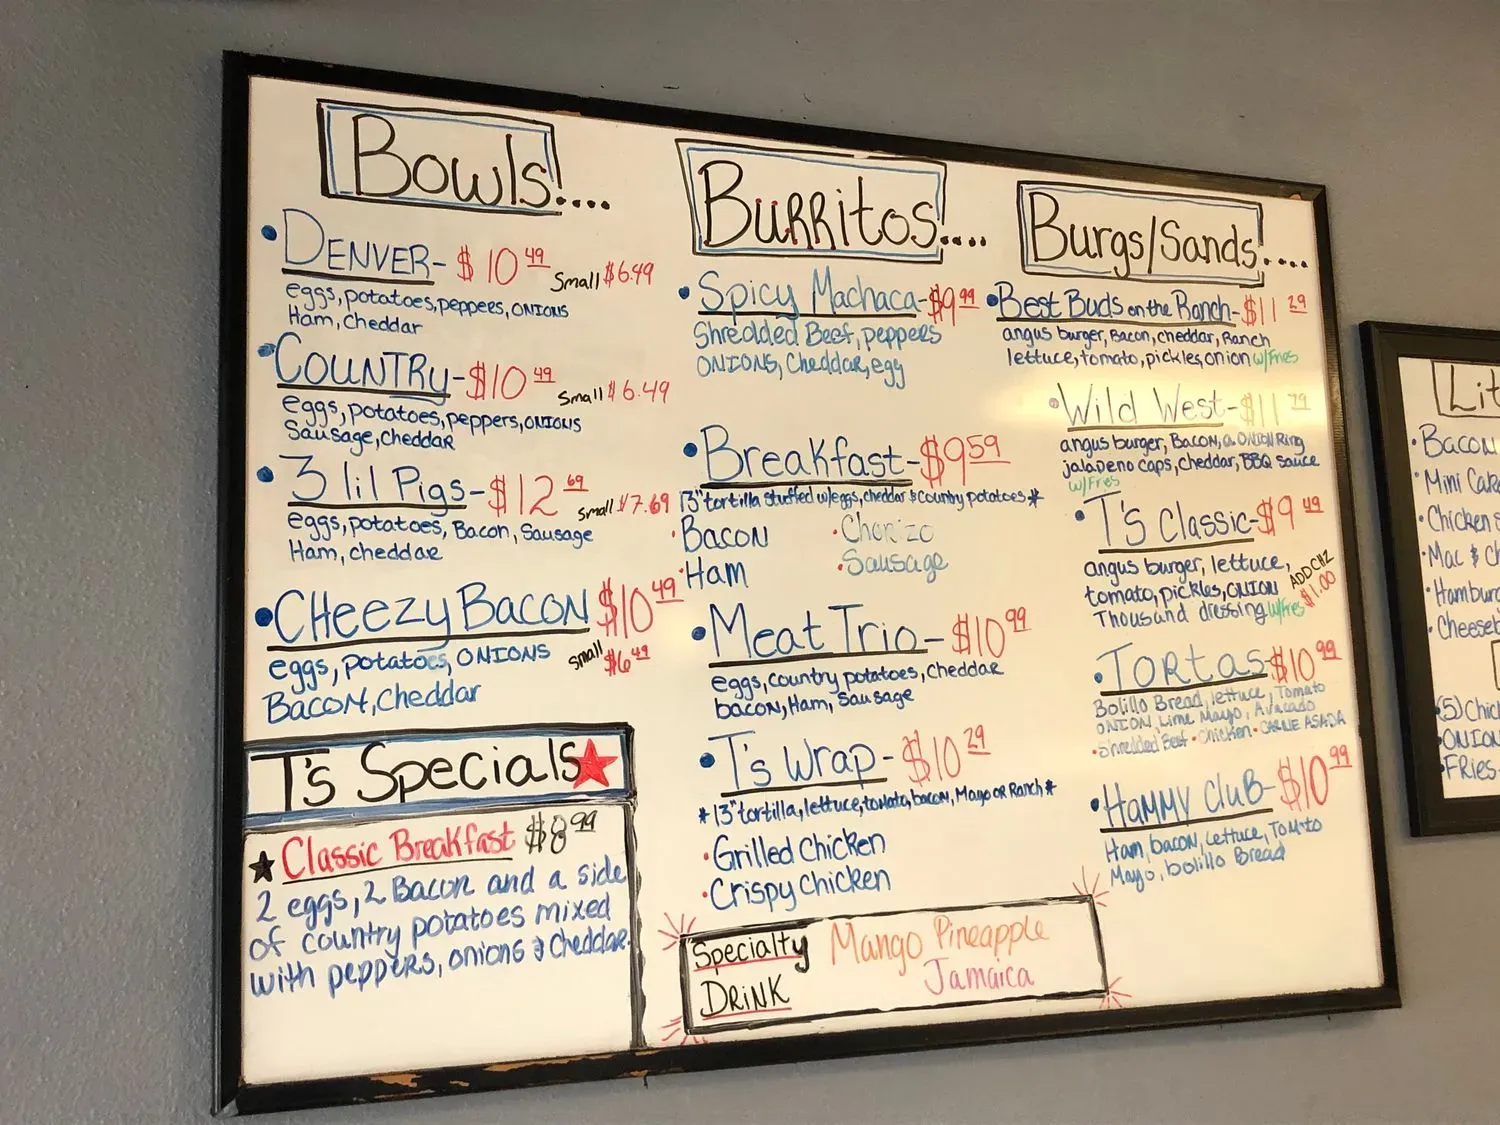 Bowls!....
• DENVER- $10 49 Small $6.49
eggs, potatoes, peppers, ONIONS
Ham, Cheddar
• COUNTRy- $10 49 Small $6.49
eggs, potatoes, peppers, ONIONS
Sausage, Cheddar
• 3 lil Pigs- $12 69 Small $7.69
eggs, potatoes, Bacon, Sausage
Ham, cheddar
• CHeezy BACON $10 49
small $6 49
eggs, potatoes, ONIONS
BACON, Cheddar
T's Specials
Classic Breakfast $8 99
2 eggs, 2 Bacon and a side
of country potatoes mixed
with peppers, onions & Cheddar.
BURRITOS!....
• Spicy Machaca- $9 99
Shredded Beef, peppers
ONIONS, Cheddar, egg
• Breakfast- $9 59
13" tortilla stuffed w/eggs, cheddar & country potatoes*
• BACON • Chorizo
• Ham • Sausage
• Meat Trio- $10 99
eggs, country potatoes, Cheddar
bacon, Ham, Sausage
• T's Wrap- $10 29
*13" tortilla, lettuce, tomato, bacon, Mayo OR Ranch*
• Grilled Chicken
• Crispy Chicken
Specialty Mango Pineapple
DRINK Jamaica
Burgs/Sands!....
• Best Buds on the Ranch- $11 29
angus burger, Bacon, cheddar, Ranch
lettuce, tomato, pickles, onion w/Fries
• Wild West- $11 79
angus burger, BACON, a ONION Ring
jalapeno caps, cheddar, BBQ sauce
w/Fries
• T's Classic- $9 49
angus burger, lettuce,
tomato, pickles, ONION ADD CHZ
Thousand dressing w/Fries $1.00
• TORTAS- $10 99
Bolillo Bread, lettuce, Tomato
ONION, Lime Mayo, Avocado
• Shredded Beef • Chicken • CARNE ASADA
• HAMMY CLUB- $10 99
Ham, bacon, Lettuce, TOMATO
Mayo, bolillo Bread
Lit
• BACON
• Mini
• Chicken
• Mac &
(5)
• ONION
• FRies-